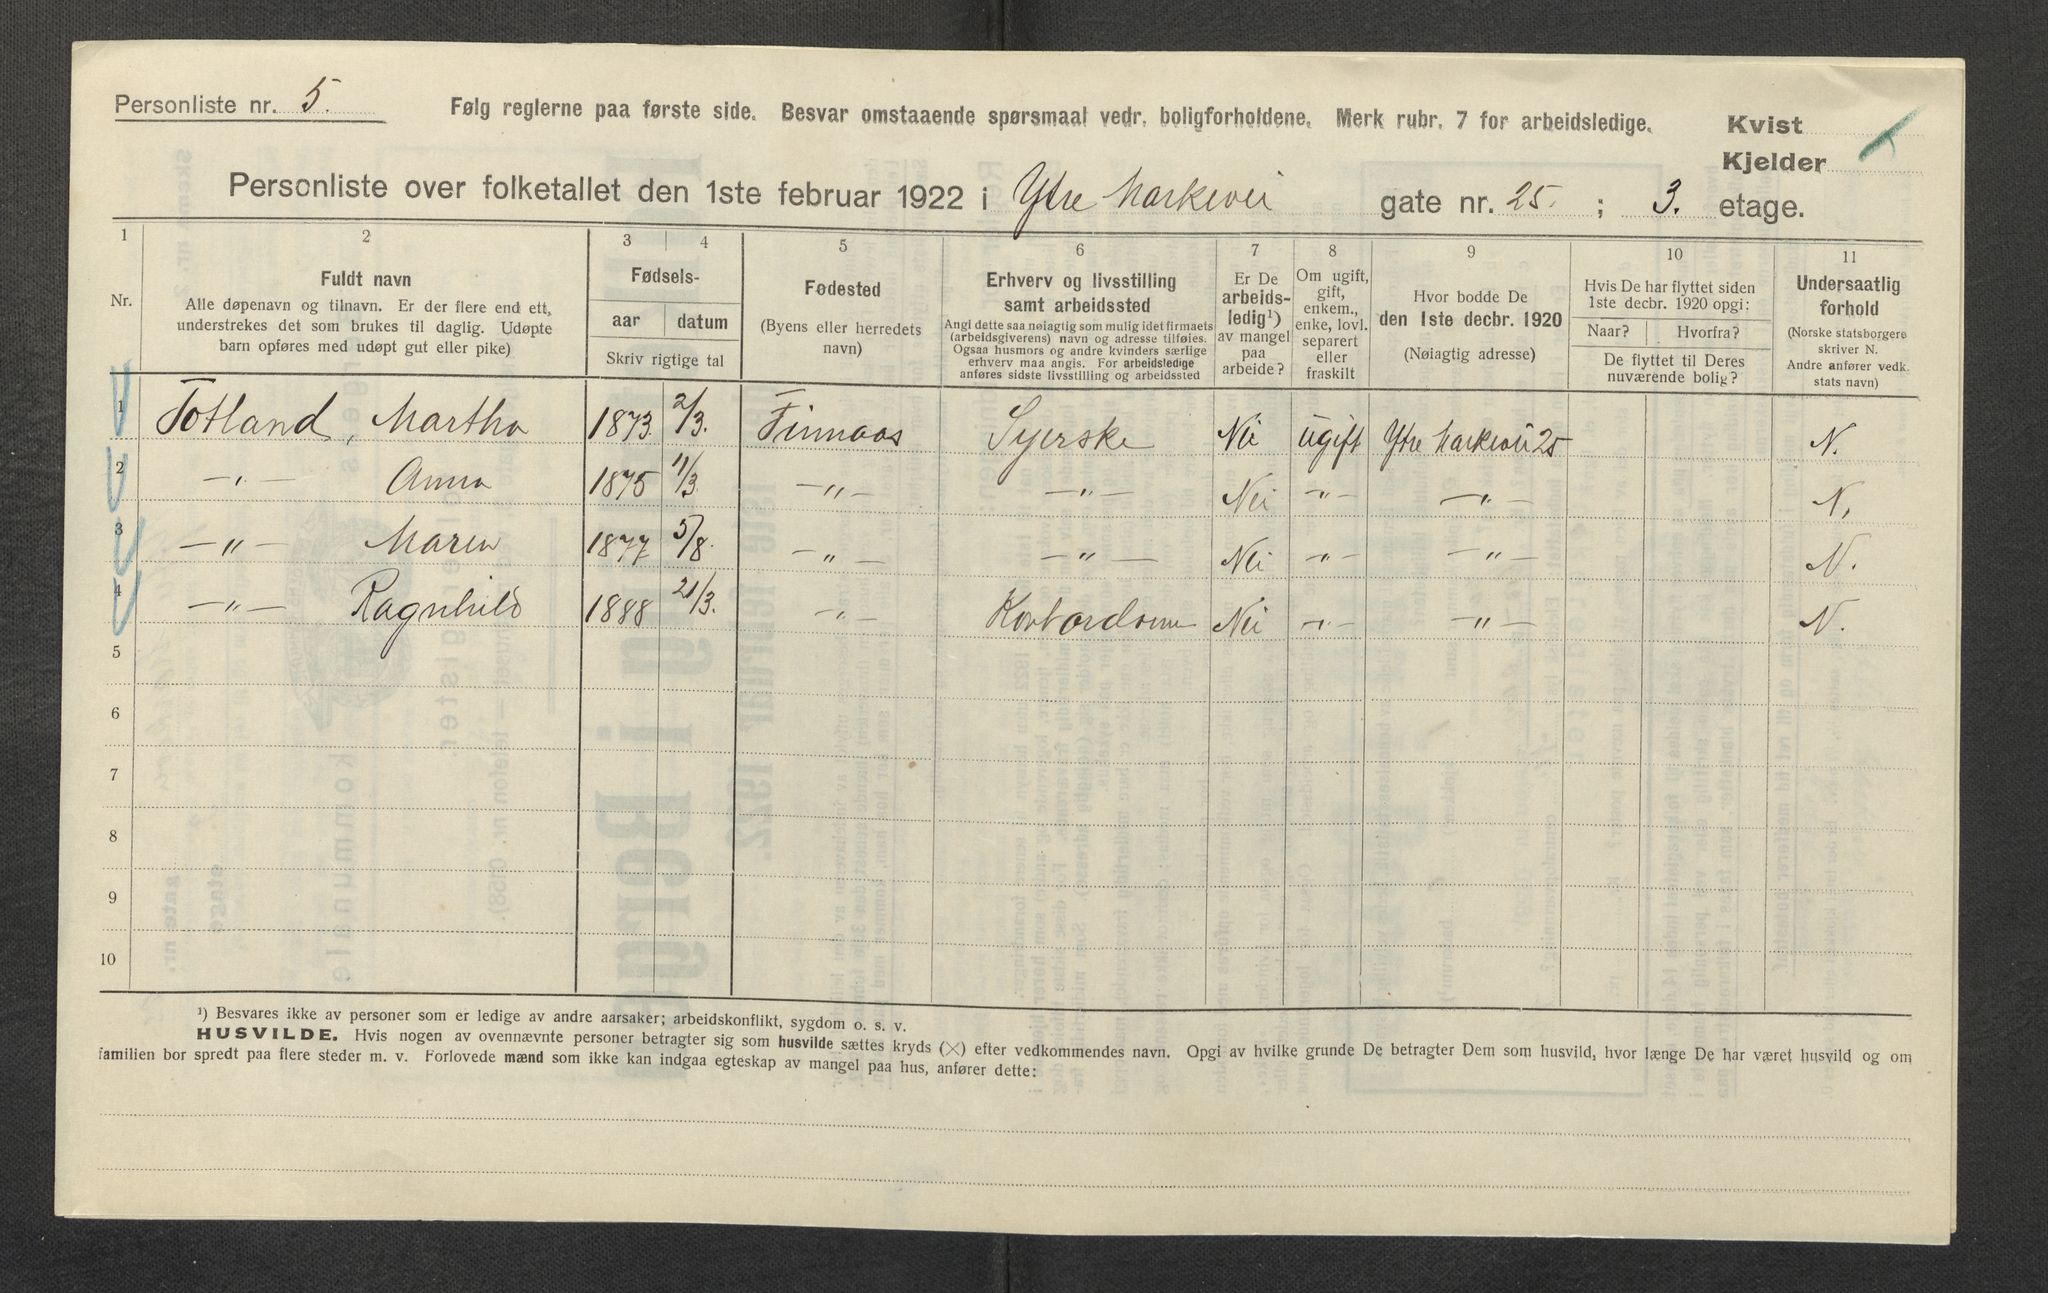 Personliste nr. 5.
Følg reglerne paa første side. Besvar omstaaende spørsmaal vedr. boligforholdene. Merk rubr. 7 for arbeidsledige.
Kvist
Kjelder
Personliste over folketallet den 1ste februar 1922 i Ytre Markevei gate nr. 25. ; 3. etage.
1 2 3 4 5 6 7 8 9 10 11
Nr.
Fuldt navn
Alle døpenavn og tilnavn. Er der flere end ett,
understrekes det som brukes til daglig. Udøpte
barn opføres med udøpt gut eller pike)
Fødsels-
aar datum
Skriv rigtige tal
Fødested
(Byens eller herredets
navn)
Erhverv og livsstilling
samt arbeidssted
Angi dette saa nøiagtig som mulig idet firmaets
(arbeidsgiverens) navn og adresse tilføies.
Ogsaa husmors og andre kvinders særlige
erhverv maa angis. For arbeidsledige
anføres sidste livsstilling og arbeidssted
Er De
arbeids-
ledig¹)
av mangel
paa
arbeide?
Om ugift,
gift,
enkem.,
enke, lovl.
separert
eller
fraskilt
Hvor bodde De
den 1ste decbr. 1920
(Nøiagtig adresse)
Hvis De har flyttet siden
1ste decbr. 1920 opgi:
Naar? Hvorfra?
De flyttet til Deres
nuværende bolig?
Undersaatlig
forhold
(Norske statsborgere
skriver N.
Andre anfører vedk.
stats navn)
1 Totland, Martha 1873 2/3. Finnaas Syerske Nei ugift Ytre Markevei 25 N.
2 -"- Anna 1875 11/3. -"- -"- Nei -"- -"- N.
3 -"- Maren 1877 5/8. -"- -"- Nei -"- -"- N.
4 -"- Ragnhild 1888 21/3. -"- Nei -"- -"- N.
5
6
7
8
9
10
¹) Besvares ikke av personer som er ledige av andre aarsaker; arbeidskonflikt, sygdom o. s. v.
HUSVILDE. Hvis nogen av ovennævnte personer betragter sig som husvilde sættes kryds (×) efter vedkommendes navn. Opgi av hvilke grunde De betragter Dem som husvild, hvor længe De har været husvild og om
familien bor spredt paa flere steder m. v. Forlovede mænd som ikke kan indgaa egteskap av mangel paa hus, anfører dette: